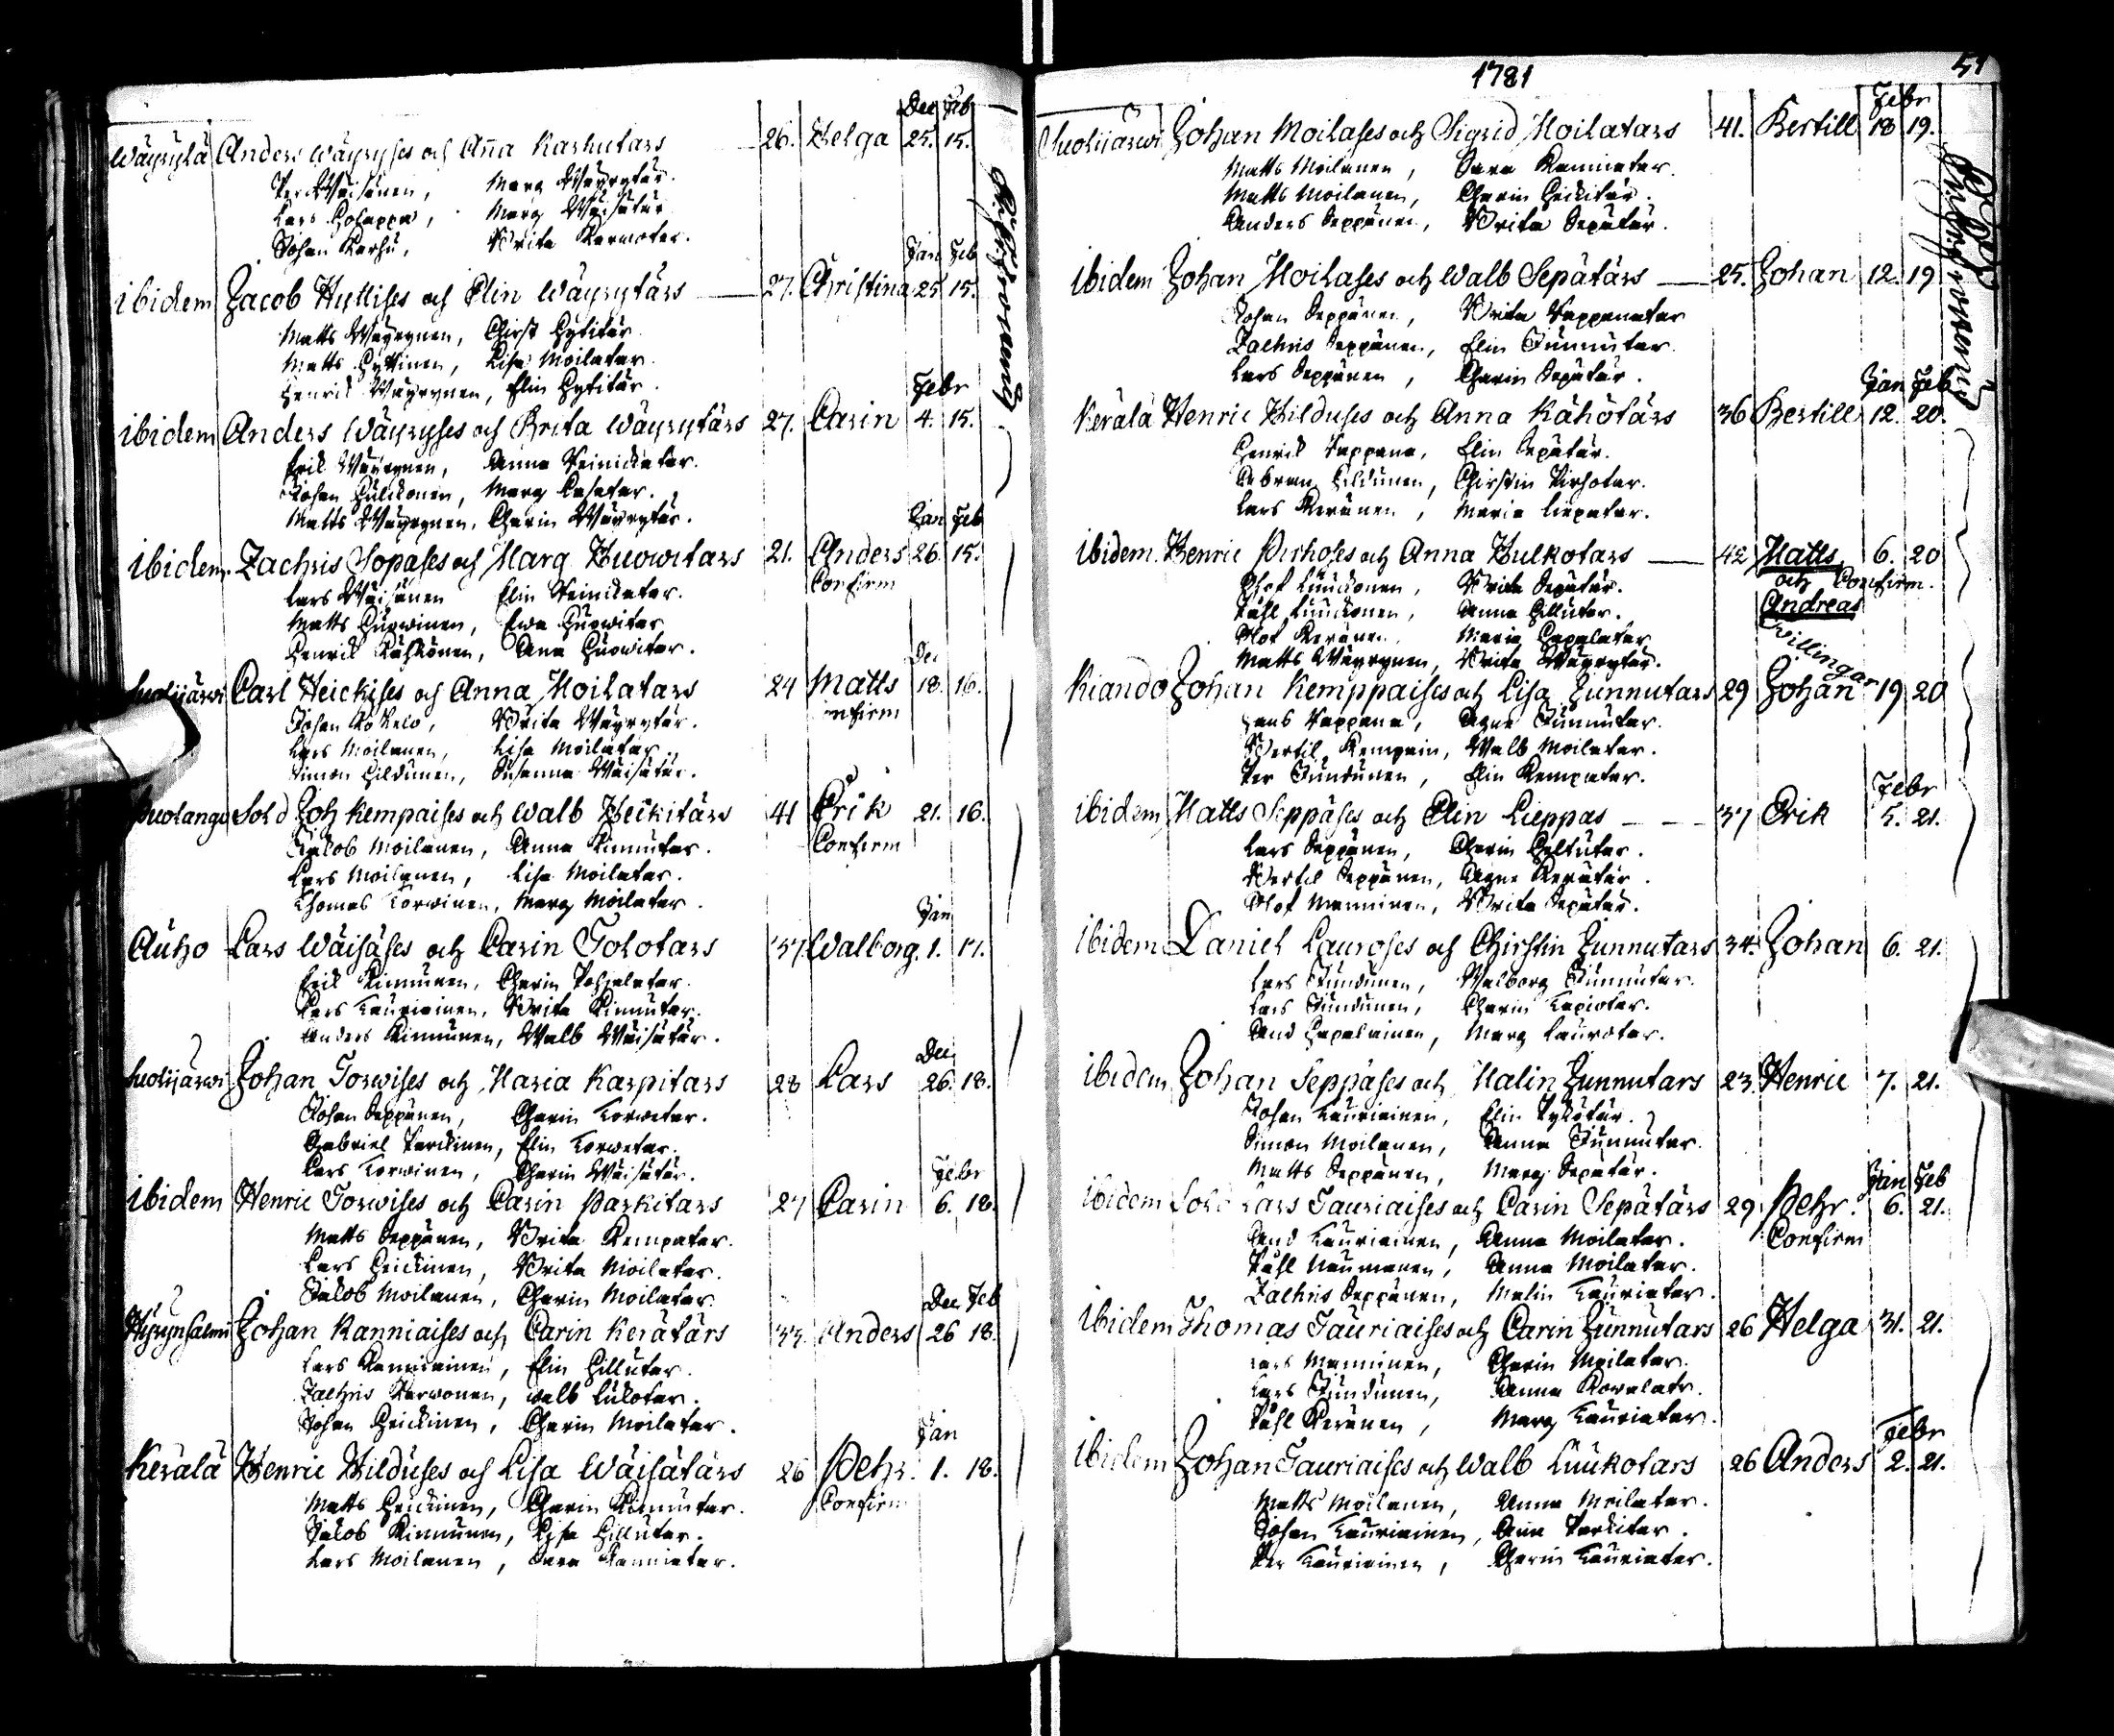 Dec Feb
Wäyrylä Anders Wäyryses och Anna Karhutars 26. Helga 25. 15.
Per Wäisänen, Marg Wäyrytär.
Lars Holappa, Marg Wäisätär
Johan Karhu, Brita Karwotar.
Jan Feb
ibidem Jacob Hyttises och Elin Wäyrytärs 27. Christina 25 15.
Matts Wäyrynen, Chirst Hytitär
Matts Hyttinen, Lisa Moilatar.
Henrik Wäyrynen, Elin Hytitär.
Febr
ibidem Anders Wäyryses och Brita Wäyrytärs 27. Carin 4. 15.
Erik Wäyrynen, Anna Heinickatar.
Johan Hulckonen, Marg
Matts Wäyrynen, Charin Wäyrytär.
Jan Feb
ibidem Zachris Sopases och Marg Huowitars 21. Anders 26. 15.
Confirm
Lars Wäisänen Elin Heinickatar.
Matts Huowinen, Ewa Huowitar
Henrik Kähkönen, Ana Huowitar.
Dec
Suolijärwi Carl Heickises och Anna Moilatars 24 Matts 18. 16.
onfirm
Johan Brita Wäyrytär.
Lars Moilanen, Lisa Moilatar.
Simon Hildunen, Susanna Wäisätär.
Puolango Sold Joh Kempaises och Walb Heikitärs 41 Erik 21. 16.
Confirm
Jakob Moilanen, Anna Kinnutar.
Lars Moilanen, Lisa Moilatar.
Thomas Torwinen, Marg Moilatar.
Jan
Auho Lars Wäisäses och Carin Tolotars 37 Walborg. 1. 17.
Erik Kinnunen, Charin Pohjalatar.
Lars Tauriainen, Brita Kinnutar.
Anders Kinnunen, Walb Wäisätär.
Dec
Suolijärwi Johan Torwises och Maria Karpitars 28 Lars 26. 18.
Johan Seppänen, Charin Torwetar.
Gabriel Parckinen, Elin Torwetar.
Lars Torwinen, Charin Wäisätär.
Febr
ibidem Henric Torwises och Carin Parkitars 27 Carin 6. 18.
Matts Seppänen, Brita Kempatar.
Lars Heickinen, Brita Moilatar.
Jakob Moilanen, Charin Moilatar.
Dec Feb
Hyrynsalmi Johan Kanniaises och Carin Kerätärs 33 Anders 26 18.
Lars Kanniainen, Elin Hillutar.
Zachris Karwonen, Walb Lukotar.
Johan Heickinen, Charin Moilatar.
Jan
Kerälä Henric Hilduses och Lisa Wäisätärs 26 Pehr. 1. 18.
Confirm
Matts Heickinen, Charin Kinnutar.
Jakob Kinnunen, Lisa Hillutar.
Lars Moilanen, Sara Kanniatar.
1781 51
Febr
Suolijärwi Johan Moilases och Sigrid Moilatars 41. Bertill 18 19.
Matts Moilanen, Sara Kanniatar.
Matts Moilanen, Charin Heickitär.
Anders Seppänen, Brita Sepätär.
ibidem Johan Moilases och Walb Sepätärs 25. Johan 12. 19
Johan Seppänen, Brita Tappanatar
Zachris Seppänen, Elin Junnutar.
Lars Seppänen, Charin Sepätär.
Jan Feb
Kerälä Henric Hilduses och Anna Kähötärs 36 Bertill 12. 20.
Henrik Tappana, Elin Sepätär.
Abram Hildunen, Chirstin Pirhotar.
Lars Keränen, Maria Liepatar.
ibidem Henric Pirhoses och Anna Hulkotars 42 Matts, 6. 20
och Confirm.
Andreas
Twillingar
Olof Luuckonen, Brita Sepätär.
Påhl Luuckonen, Anna Hillutar.
Olof Keränen, Maria Hapalatar
Matts Wäyrynen, Brita Wäyrytär.
Kiando Johan Kemppaises och Lisa Junnutars 29 Johan 19 20
Hans Tappana, Agne Junnutar.
Bertil Kempain, Walb Moilatar.
Per Jundunen, Elin Kempatar.
Febr
ibidem Matts Seppäses och Elin Lieppas 37 Erik 5. 21.
Lars Seppänen, Charin Heltutar.
Bertil Seppänen, Agne Kerätär.
Olof Manninen, Brita Sepätär.
ibidem Daniel Lauroses och Chirstin Junnutars 34. Johan 6. 21.
Lars Jundunen, Walborg Junnutar.
Lars Jundunen, Charin Tapiotar.
And Hapalainen, Marg Laurotar.
ibidem Johan Seppäses och Malin Junnutars 23. Henric 7. 21.
Johan Tauriainen, Elin Pykötär.
Simon Moilanen, Anna Junnutar.
Matts Seppänen, Marg Sepätär.
Jan Feb
ibidem Sold Lars Tauriaises och Carin Sepätärs 29 Pehr. 6. 21.
Confirm
And Tauriainen, Anna Moilatar.
Påhl Naumanen, Anna Moilatar.
Zachris Seppänen, Malin Tauriatar.
ibidem Thomas Tauriaises och Carin Junnutars 26 Helga 31. 21.
Lars Manninen, Charin Moilatar.
Lars Jundunen, Anna Kowalatr.
Påhl Keränen, Marg Tauriatar.
Febr
ibidem Johan Tauriaises och Walb Luukotars 26 Anders 2. 21.
Matts Moilanen, Anna Moilatar.
Johan Tauriainen, Ana Parkitar.
Per Tauriainen, Charin Tauriatar.